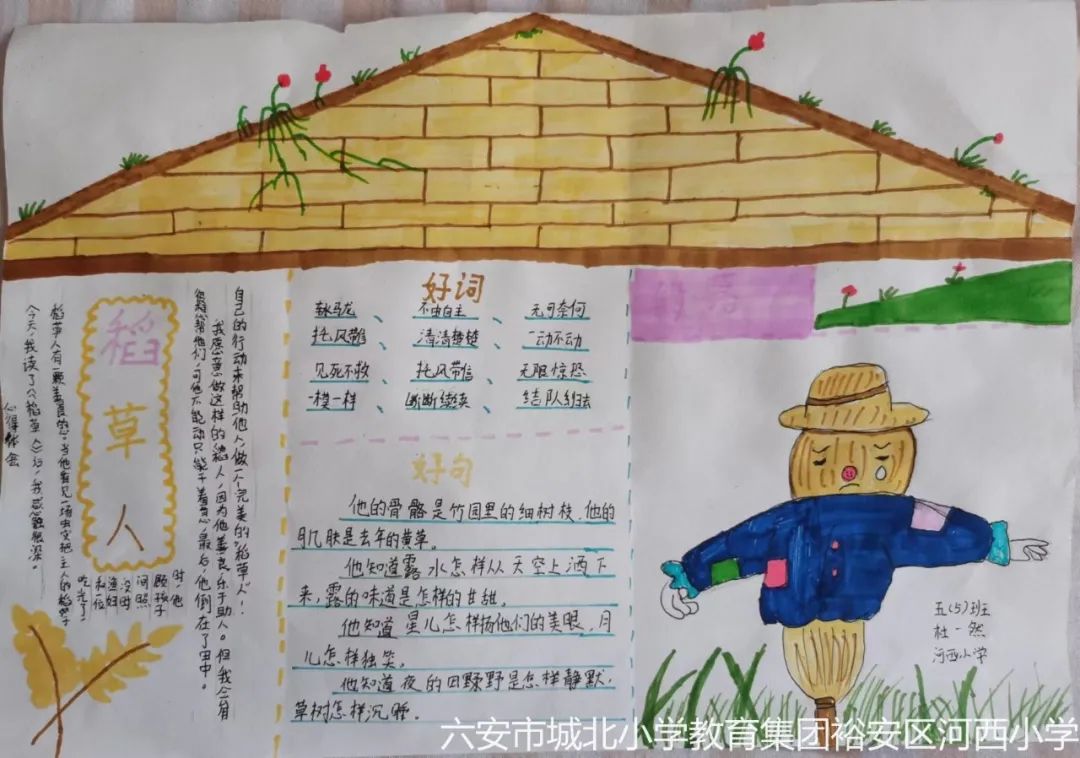 稻草人
心得体会
今天,我读了《稻草人》后,我感触很深。
稻草人有一颗善良的心。当他看见一场虫灾把主人的稻子
吃光了
和一位
渔妇
没时
间照
顾孩子
时,他
很想帮他们,可他不能动只能干着急,最后,他倒在了田中。
我愿意做这样的稻人,因为他善良,乐于助人。但我会用
自己的行动来帮助他人,做一个完美的“稻草人”!
好词
不由自主、无可奈何
清清楚楚、一动不动
见死不救、托风带信、无限惊恐
一模一样、断断续续、结队
好句
他的骨骼是竹园里的细树枝,他的
肌肤是去年的黄草。
他知道露水怎样从天空上洒下
来,露的味道是怎样的甘甜。
他知道星儿怎样扬他们的美眼,月
儿怎样独笑。
他知道夜的田野野是怎样静默,
草树怎样沉睡。
五(5)班
杜一然
河西小学
六安市城北小学教育集团裕安区河西小学